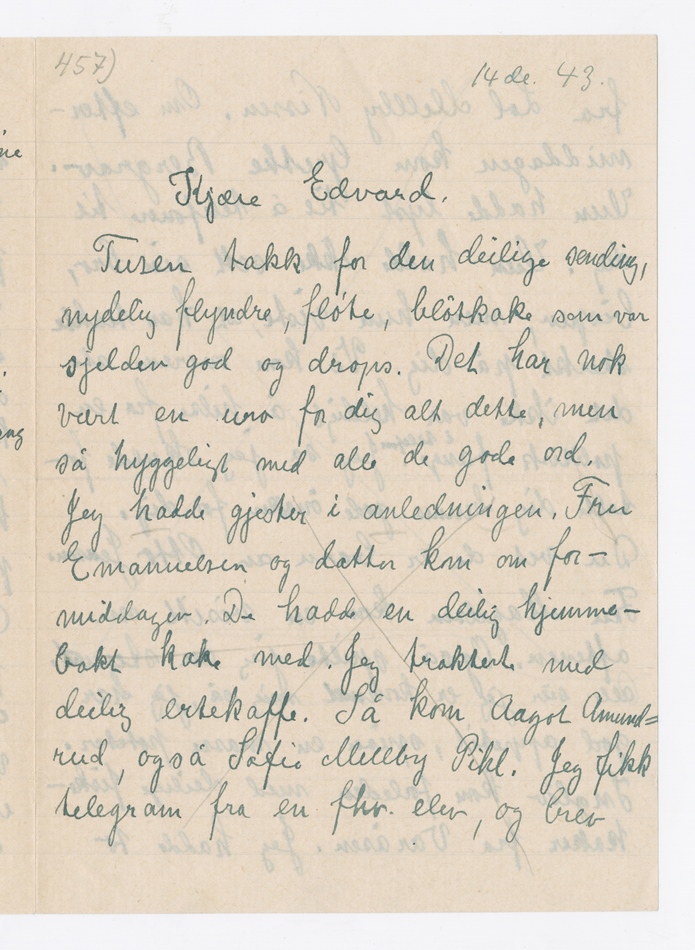 457)
14 de. 43.
Kjære Edvard.
Tusen takk for den deilige sending,
nydelig flyndre, fløte, bløtkake som var
sjelden god og drops. Det har nok
vært en uro for dig alt dette, men
så hyggeligt med alle de gode ord.
Jeg hadde gjester i anledningen. Fru
Emanuelsen og datter kom om for-
middagen. De hadde en deilig hjemme-
bakt kake med. Jeg trakterte med
deilig ertekaffe. Så kom Aagot Amund=
rud, også Sofie Mellby Pihl. Jeg fikk
telegram fra en fhv. elev, og brev